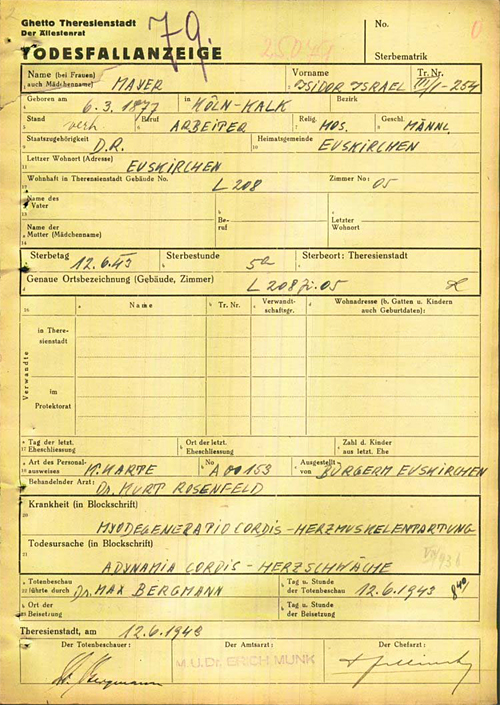 Ghetto Theresienstadt
Der Ältestenrat
TODESFALLANZEIGE
79.
No.
Sterbematrik
Name (bei Frauen auch Mädchenname) MAYER
Vorname ISIDOR ISRAEL
Tr. Nr. III/1-254
Geboren am 6.3.1877 in KÖLN-KALK Bezirk
Stand verh. Beruf ARBEITER Relig. MOS. Geschl. MÄNNL.
Staatszugehörigkeit D.R. Heimatsgemeinde EUSKIRCHEN
Letzter Wohnort (Adresse) EUSKIRCHEN
Wohnhaft in Theresienstadt Gebäude No. L 208 Zimmer No: 05
Name des Vater
Beruf
Letzter Wohnort
Name der Mutter (Mädchenname)
Sterbetag 12.6.43 Sterbestunde 5 Sterbeort: Theresienstadt
Genaue Ortsbezeichnung (Gebäude, Zimmer) L 208 Zi. 05
Name Tr. Nr. Verwandtschaftsgr. Wohnadresse (b. Gatten u. Kindern auch Geburtdaten):
Verwandte
in Theresienstadt
im Protektorat
Tag der letzt. Eheschliessung
Ort der letzt. Eheschliessung
Zahl d. Kinder aus letzt. Ehe
Art des Personalausweises K.KARTE No A 00153 Ausgestellt von BÜRGERM EUSKIRCHEN
Behandelnder Arzt: Dr. KURT ROSENFELD
Krankheit (in Blockschrift)
MYODEGENERATIO CORDIS - HERZMUSKELENTARTUNG
Todesursache (in Blockschrift)
ADYNAMIA CORDIS - HERZSCHWÄCHE
Totenbeschau führte durch Dr. MAX BERGMANN
Tag u. Stunde der Totenbeschau 12.6.1943 8 40
Ort der Beisetzung
Tag u. Stunde der Beisetzung
Theresienstadt, am 12.6.1943
Der Totenbeschauer: Der Amtsarzt: Der Chefarzt:
Dr. Bergmann
M.U.Dr. ERICH MUNK